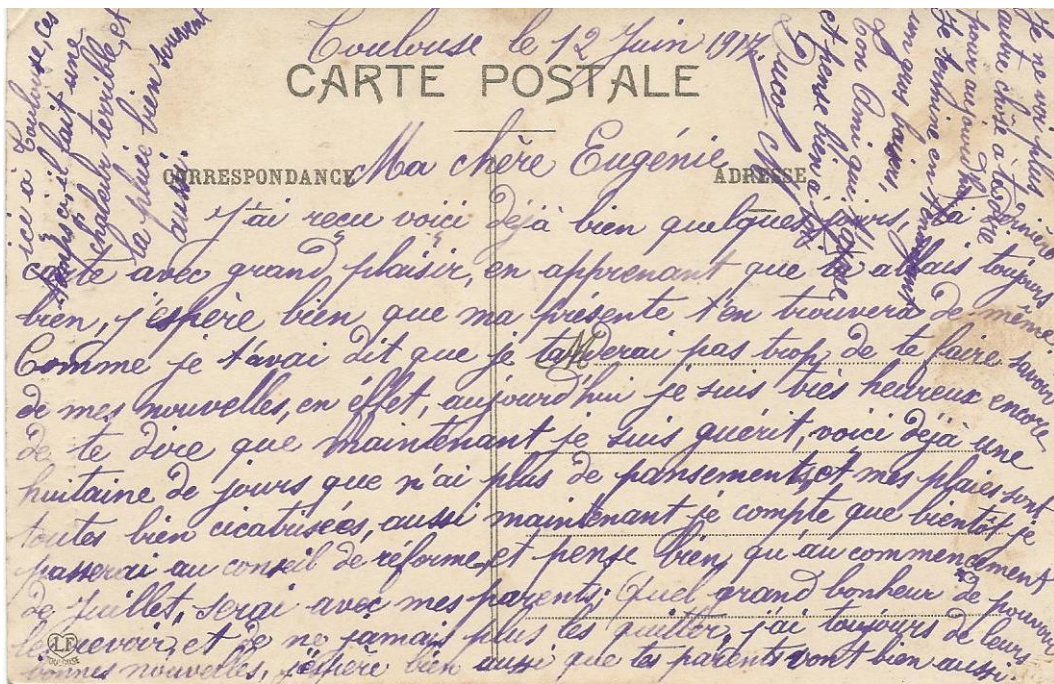 Toulouse le 12 Juin 1917.
CARTE POSTALE
Ma chère Eugénie
CORRESPONDANCE
ADRESSE
J'ai reçu voici déjà bien quelques jours, ta dernière
carte avec grand plaisir, en apprenant que tu allais toujours
bien, j'espère bien que ma présente t'en trouvera de même.
Comme je t'avai dit que je tarderai pas trop de te faire savoir
de mes nouvelles, en éffet, aujourd'hui je suis bien heureux encore
de te dire que maintenant je suis guérit, voici déjà une
huitaine de jours que n'ai plus de pansements, et mes plaies sont
toutes bien cicatrisées, aussi maintenant je compte que bientôt je
passerai au conseil de réforme, et pense bien, qu'au commencement
de Juillet, serai avec mes parents; quel grand bonheur de pouvoir
les revoir, et de ne jamais plus les quitter, j'ai toujours de leurs
bonnes nouvelles, j'espère bien aussi que tes parents vont bien aussi.
ici à Toulouse, ces
temps-ci il fait une
chaleur terrible, et
la pluie bien souvent
aussi.
Je ne vois plus
autre chose à te dire
pour aujourd'hui
Je termine en t'envoyant
un gros baiser,
Ton Ami qui t'aime
et pense bien à toi
M
LF
TOULOUSE